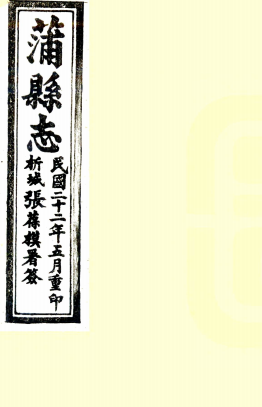 蒲縣志
民國二十二年五月重印
析城張葆模署簽